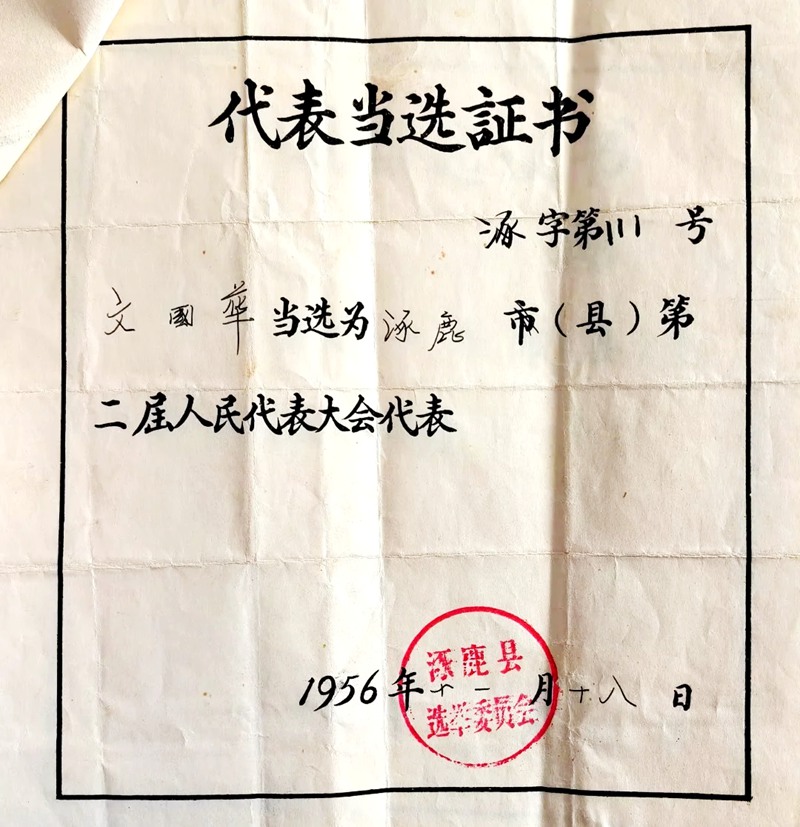 代表当选証书
涿字第111号
文國華当选为涿鹿市(县)第
二届人民代表大会代表
1956年十一月十八日
涿鹿县
选举委员会